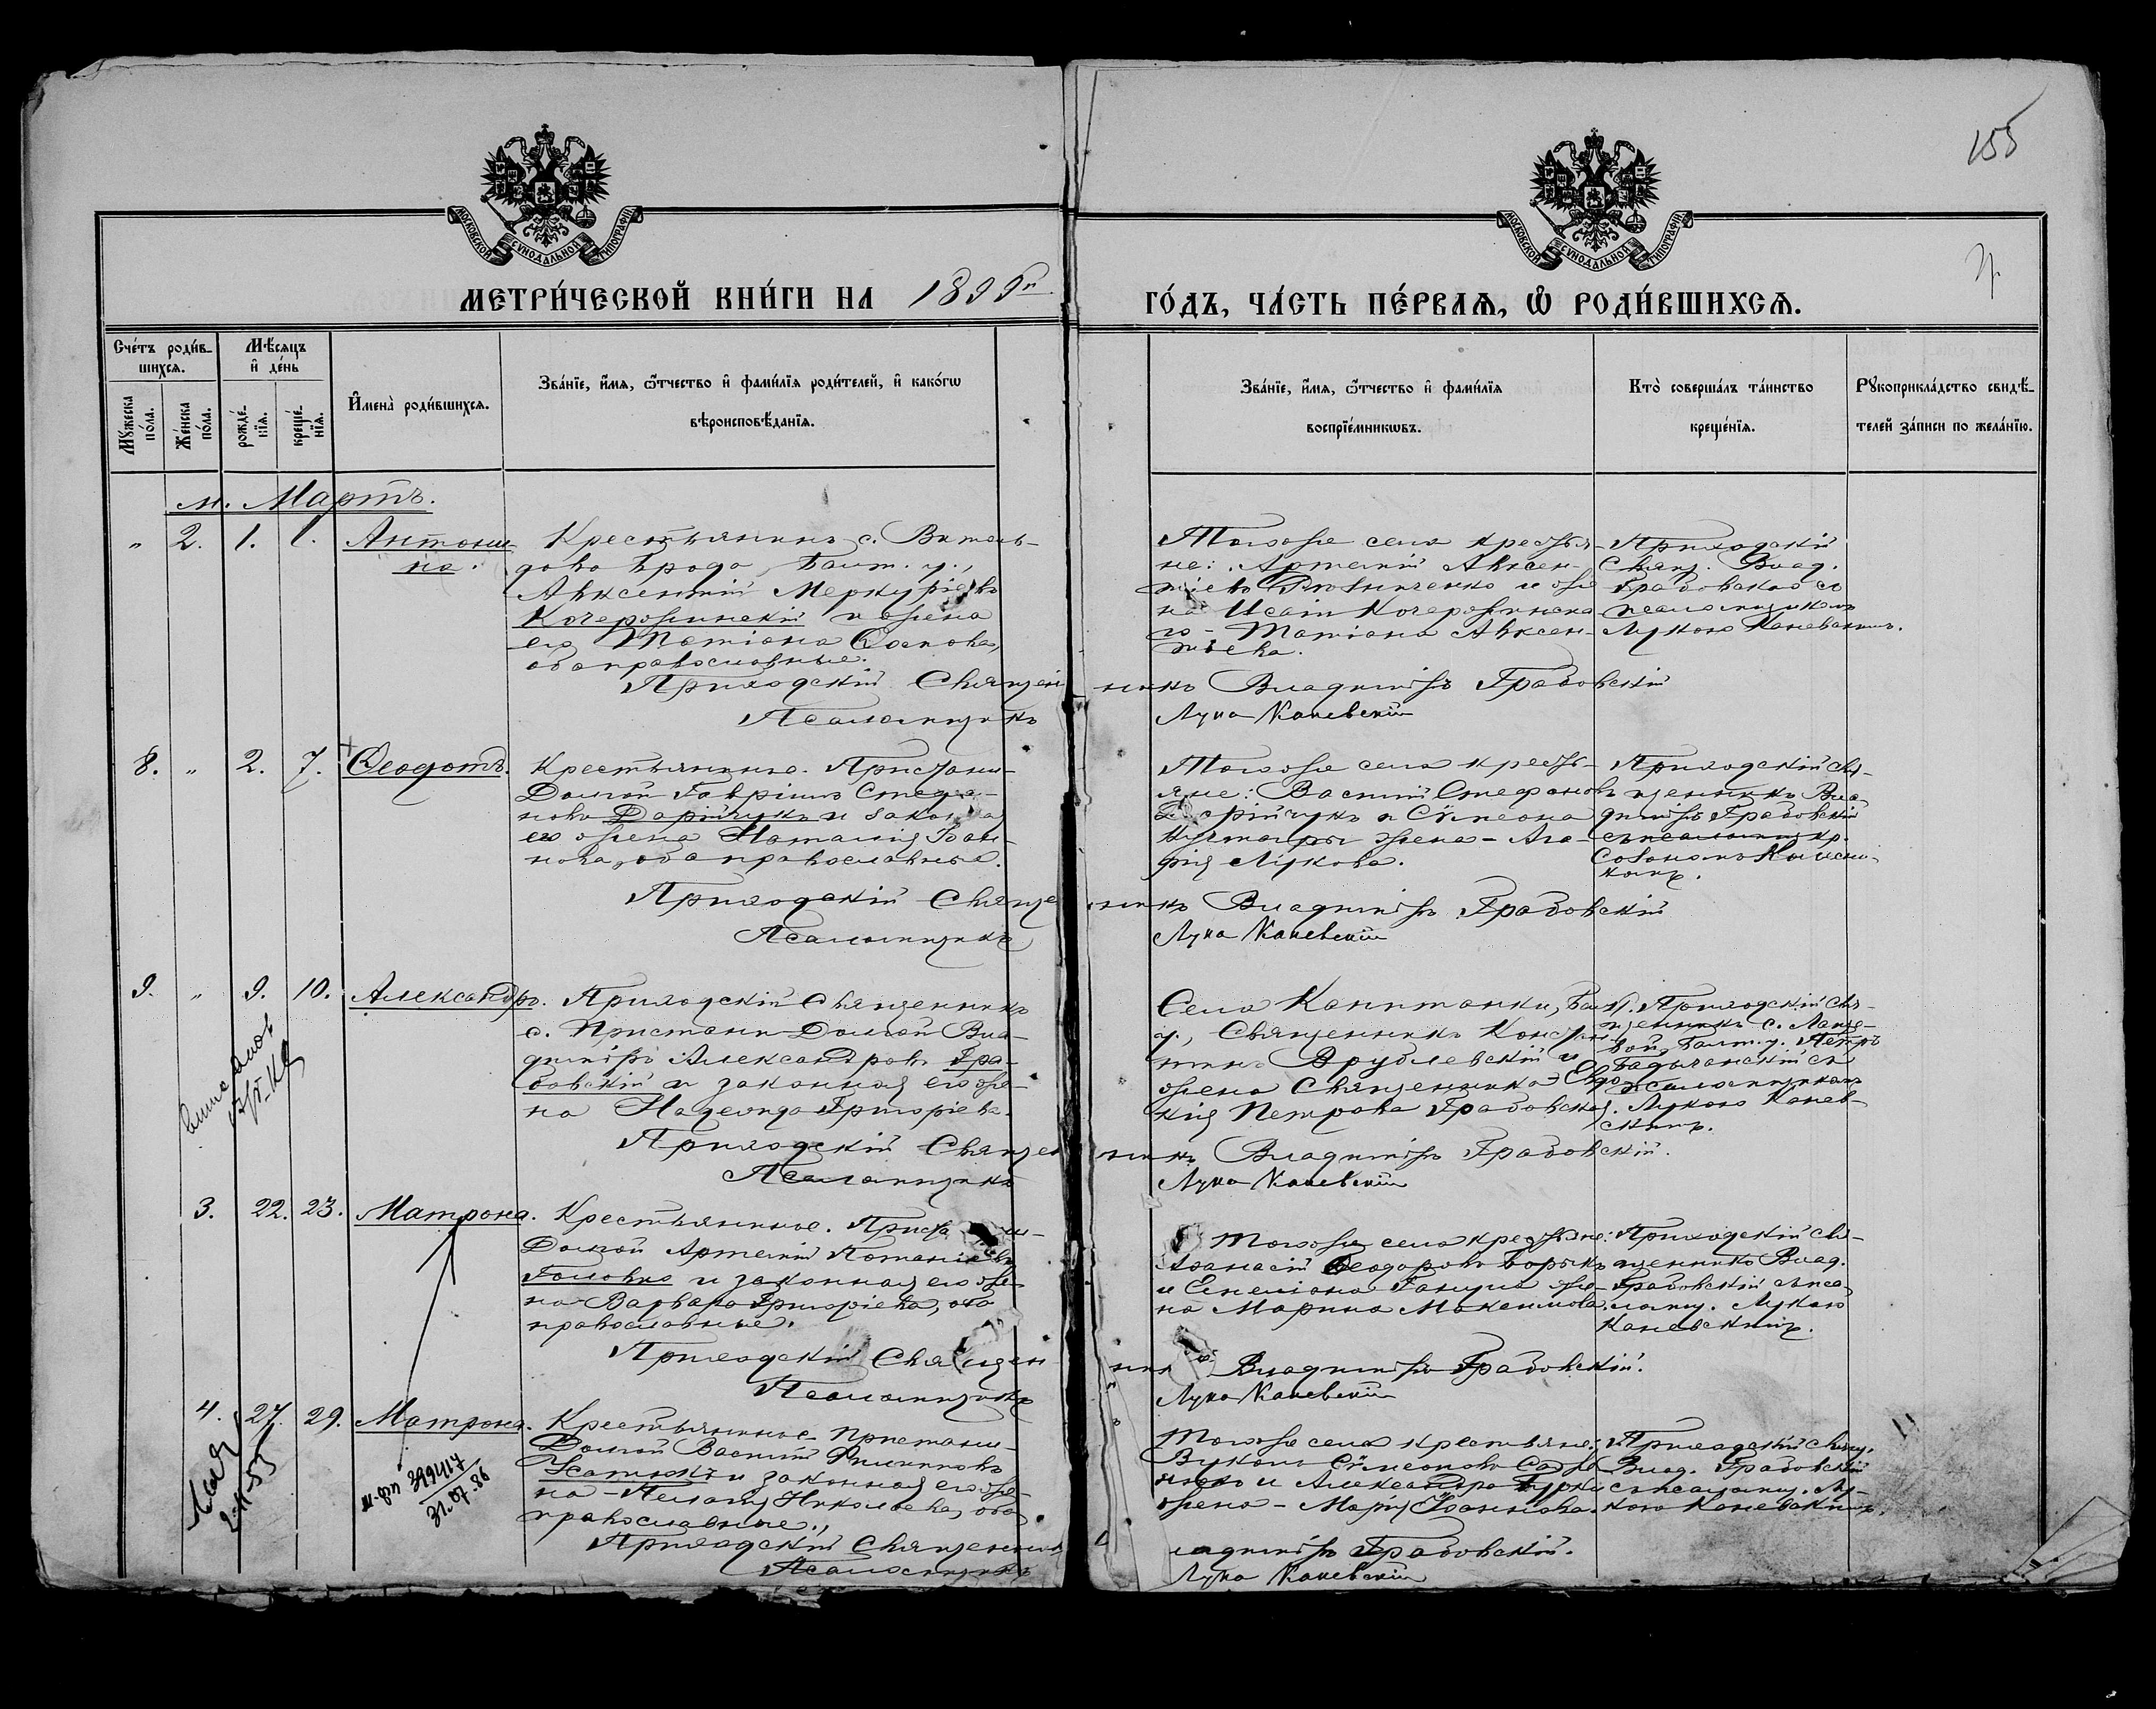 155
МОСКОВСКОЙ СѴНОДАЛЬНОЙ ТИПОГРАФІИ
МОСКОВСКОЙ СѴНОДАЛЬНОЙ ТИПОГРАФІИ
МЕТРИ́ЧЕСКОЙ КНИ́ГИ НА 1899 го́дъ, ча́сть пе́рваѧ, ѡ҆ роди́вшихсѧ.
Сче́тъ роди́в-
шихсѧ.
Мꙋжеска по́ла.
Же́нска по́ла.
Мѣ́сѧцъ
и҆ де́нь
рожде́-
нїѧ.
креще́-
нїѧ.
И҆мена̀ роди́вшихсѧ.
Зва́нїе, и҆́мѧ, ѻ҆́тчество и҆ фами́лїѧ роди́телей, и҆ како́гѡ
вѣроисповѣ́данїѧ.
Зва́нїе, и҆́мѧ, ѻ҆́тчество и҆ фами́лїѧ
воспрїе́мникѡвъ.
Кто̀ соверша́лъ та́инство
креще́нїѧ.
Рꙋкоприкла́дство свидѣ́-
телей за́писи по жела́нїю.
м. Мартъ.
" 2. 1. 1. Антони
на.
Крестьянинъ с. Витель-
дова Брода, Балт. у.,
Авксентий Меркуріевъ
Кочерожинскій и жена
его Татіана
оба православные.
Тогоже села крестья-
не: Артемій Авксен-
тіевъ и же
на Исаіи Кочерожинска
го - Татіана Авксен-
тьева.
Приходскій
Свящ. Влад.
Грабовскій съ
псаломщикомъ
Лукою Каневскимъ.
Приходскій Священникъ Владиміръ Грабовскій
Псаломщикъ Лука Каневскій
8. " 2. 7. Ѳеодотъ.
Крестьянинъ с. Пристани-
Долгой Гавріилъ Стефа-
новъ Дарійчукъ и законная
его жена Наталія Іоан-
нова, оба православные.
Тогоже села кресть-
яне: Василій Стефановъ
Дарійчукъ и Сѵмеона
жена - Ага-
фія Лукова.
Приходскій свя-
щенникъ Вла-
диміръ Грабовскій
съ псаломщикр.
Приходскій Священникъ Владиміръ Грабовскій
Псаломщикъ Лука Каневскій
9. " 9. 10. Александръ.
Приходскій Священникъ
с. Пристани-Долгой Вла-
диміръ Александровъ Гра-
бовскій и законная его же-
на Надежда Григоріева.
Села Капитанки, Балт.
у., Священникъ Констан-
тинъ Врублевскій и
жена Священника Евдо-
кія Петрова Грабовская.
Приходскій свя-
щенникъ с.
Балт. у. Петръ
съ
псаломщикомъ
Лукою Канев-
скимъ.
Приходскій Священникъ Владиміръ Грабовскій.
Псаломщикъ Лука Каневскій
3. 22. 23. Матрона.
Крестьянинъ с. Пристани-
Долгой Артемій
Головко и законная его же-
на Варвара Григоріева, оба
православные.
Тогоже села крестьяне:
Аѳанасій Ѳеодоровъ
и Емеліана жо-
на Марина Максимова.
Приходскій свя-
щенникъ Влад.
Грабовскій съ пса-
ломщ. Лукою
Каневскимъ.
Приходскій Священникъ Владиміръ Грабовскій.
Псаломщикъ Лука Каневскій
4. 27. 29. Матрона.
Крестьянинъ с. Пристани-
Долгой Василій Филипповъ
и законная его же-
на - Пелагія Николаева, оба
православные.
Тогоже села крестьяне:
Вуколъ Сѵмеоновъ
и Александра
жена - Марія Іоаннова.
Приходскій свящ.
Влад. Грабовскій
съ псаломщ. Лу-
кою Каневскимъ.
399417
31.07.86
Приходскій Священникъ
ладиміръ Грабовскій.
Псаломщикъ Лука Каневскій